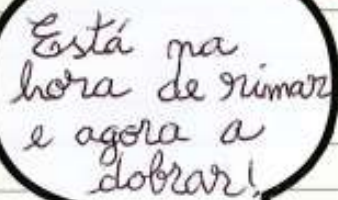 Está na
hora de rimar
e agora a
dobrar!